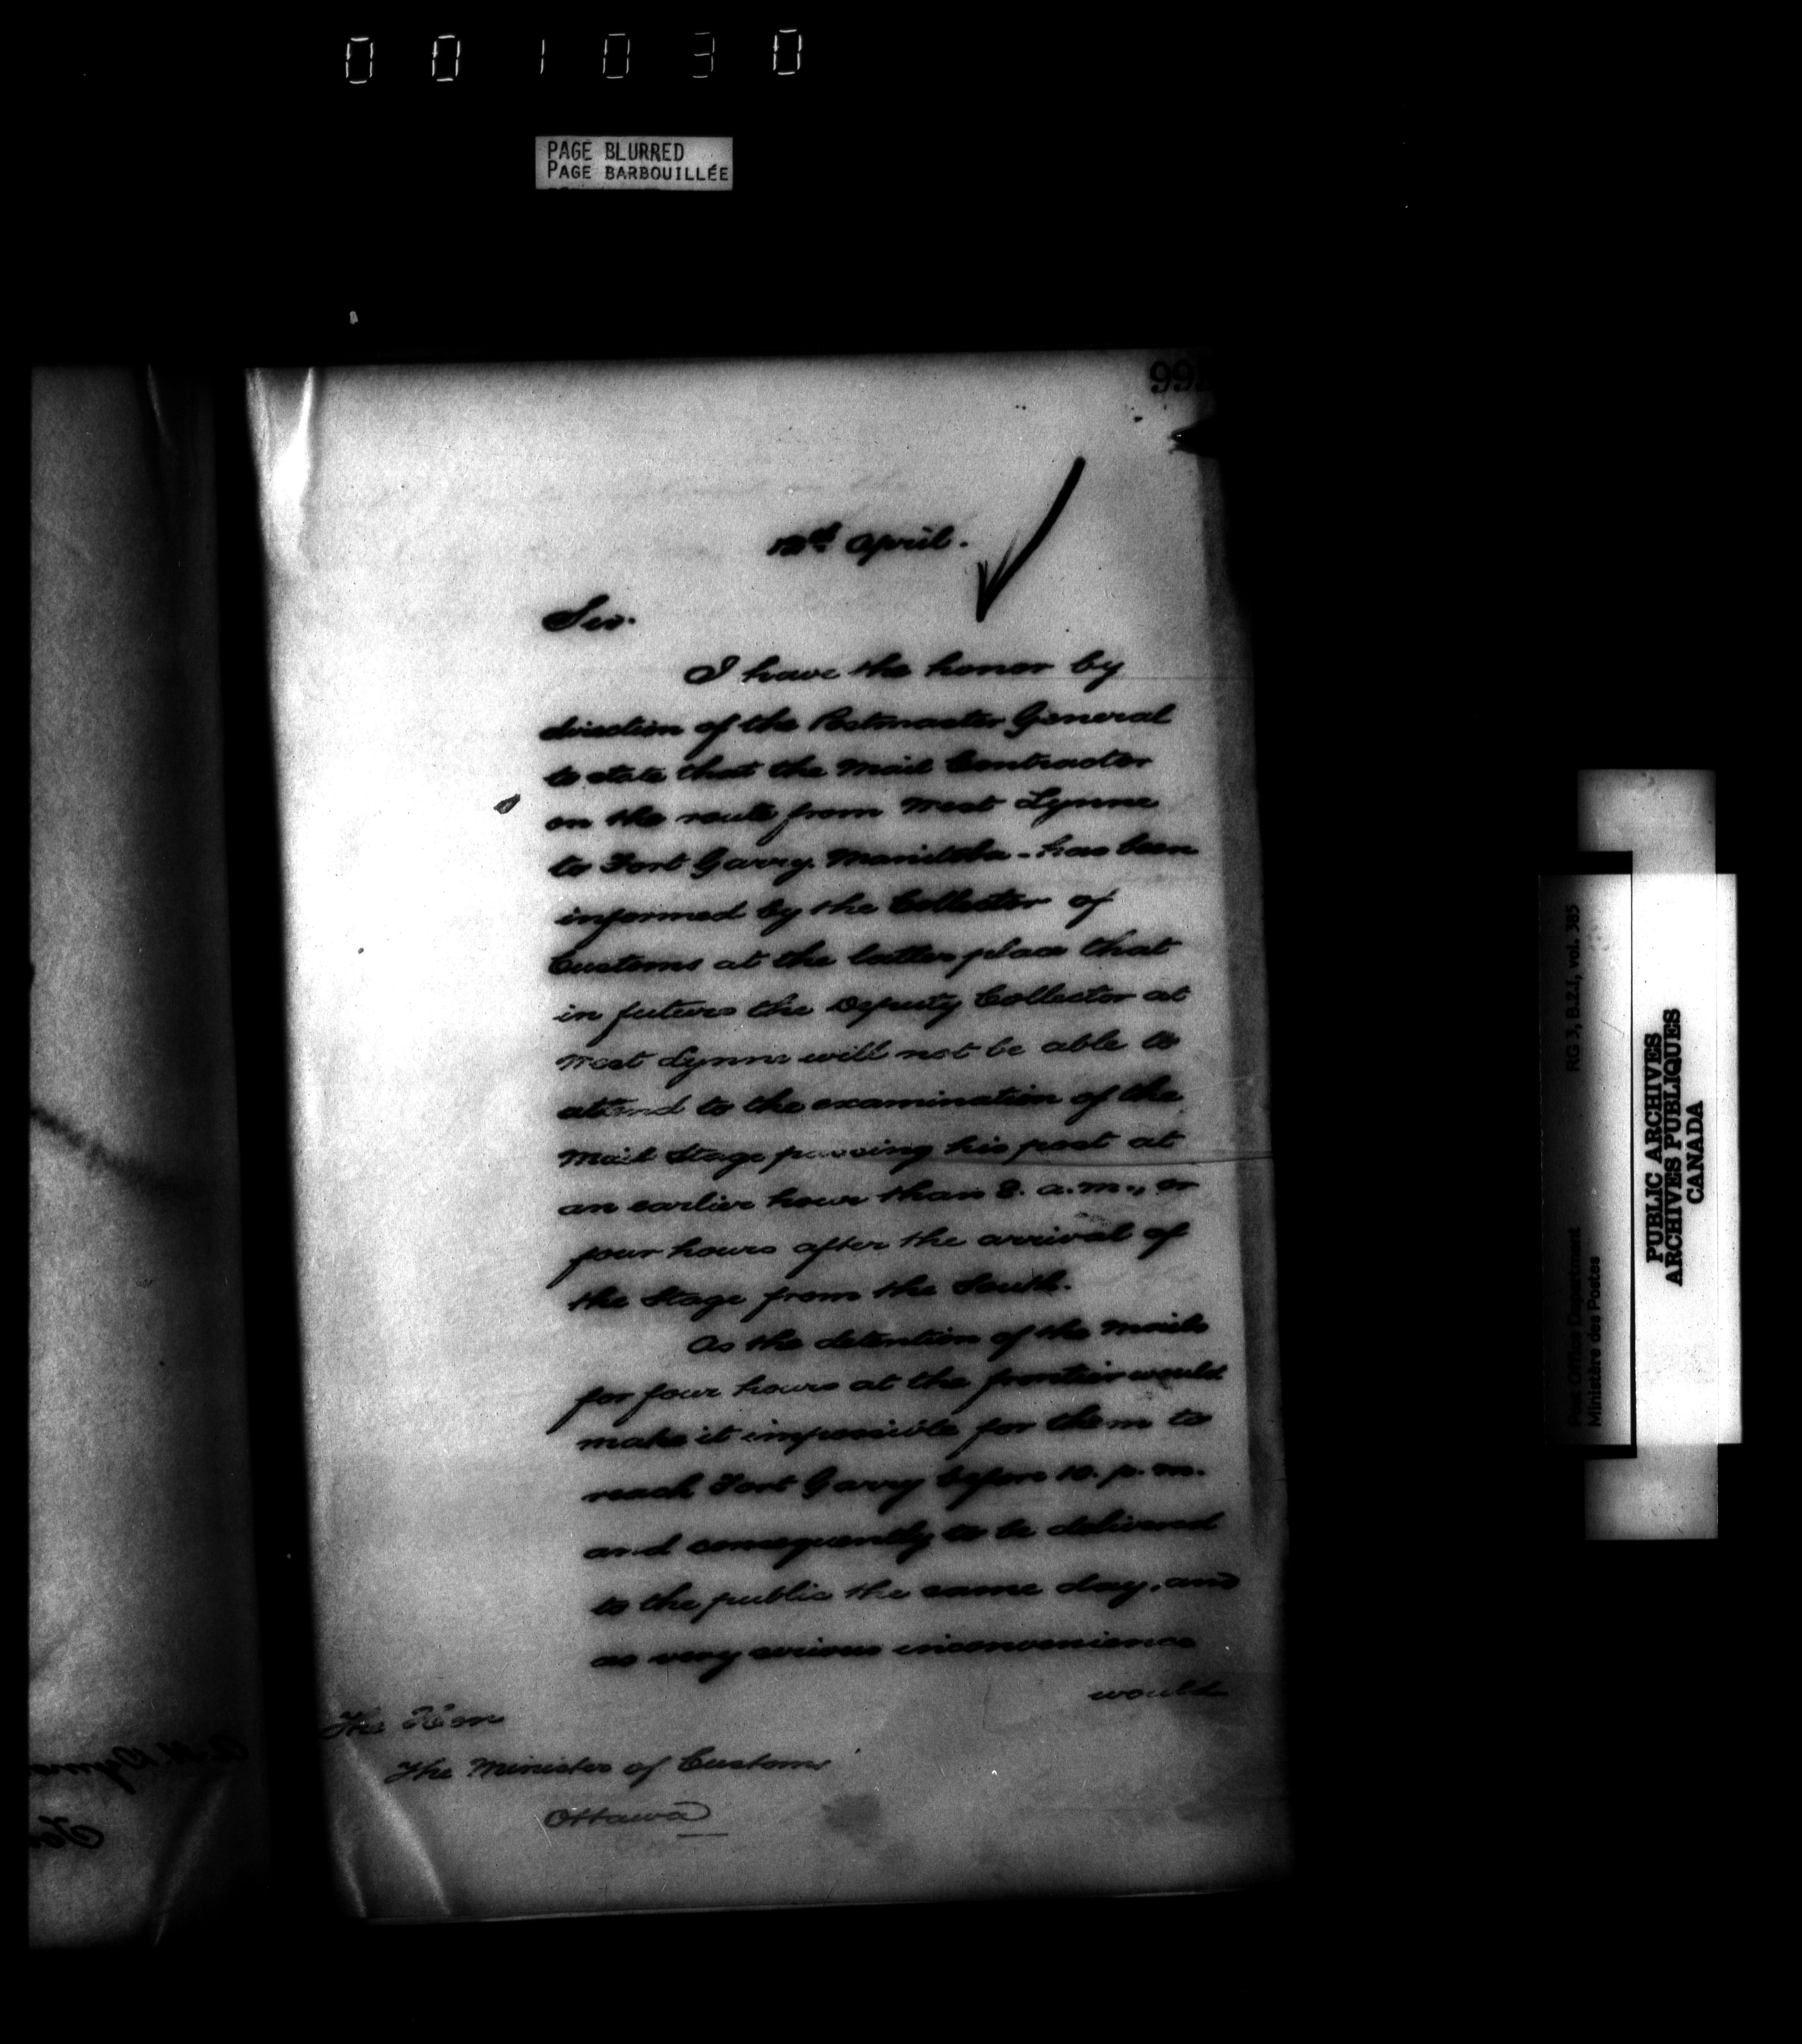 001030
PAGE BLURRED
PAGE BARBOUILLÉE
99
April.
Sir.
I have the honor by
direction of the Postmaster General
to state that the Mail Contractor
on the route from West Lynne
to Fort Garry. Manitoba - has been
informed by the Collector of
Customs at the latter place that
in future the Deputy Collector at
West Lynne will not be able to
attend to the examination of the
Mail Stage passing his post at
an earlier hour than 8. a.m., or
four hours after the arrival of
the Stage from the South.
As the detention of the Mails
for four hours at the frontier would
make it impossible for them to
reach Fort Garry before 10. p.m.
and consequently to be delivered
to the public the same day, and
as very serious inconvenience
would
The Hon
The Minister of Customs
Ottawa
RG 3, B.2.1, vol. 385
Post Office Department
Ministère des Postes
PUBLIC ARCHIVES
ARCHIVES PUBLIQUES
CANADA